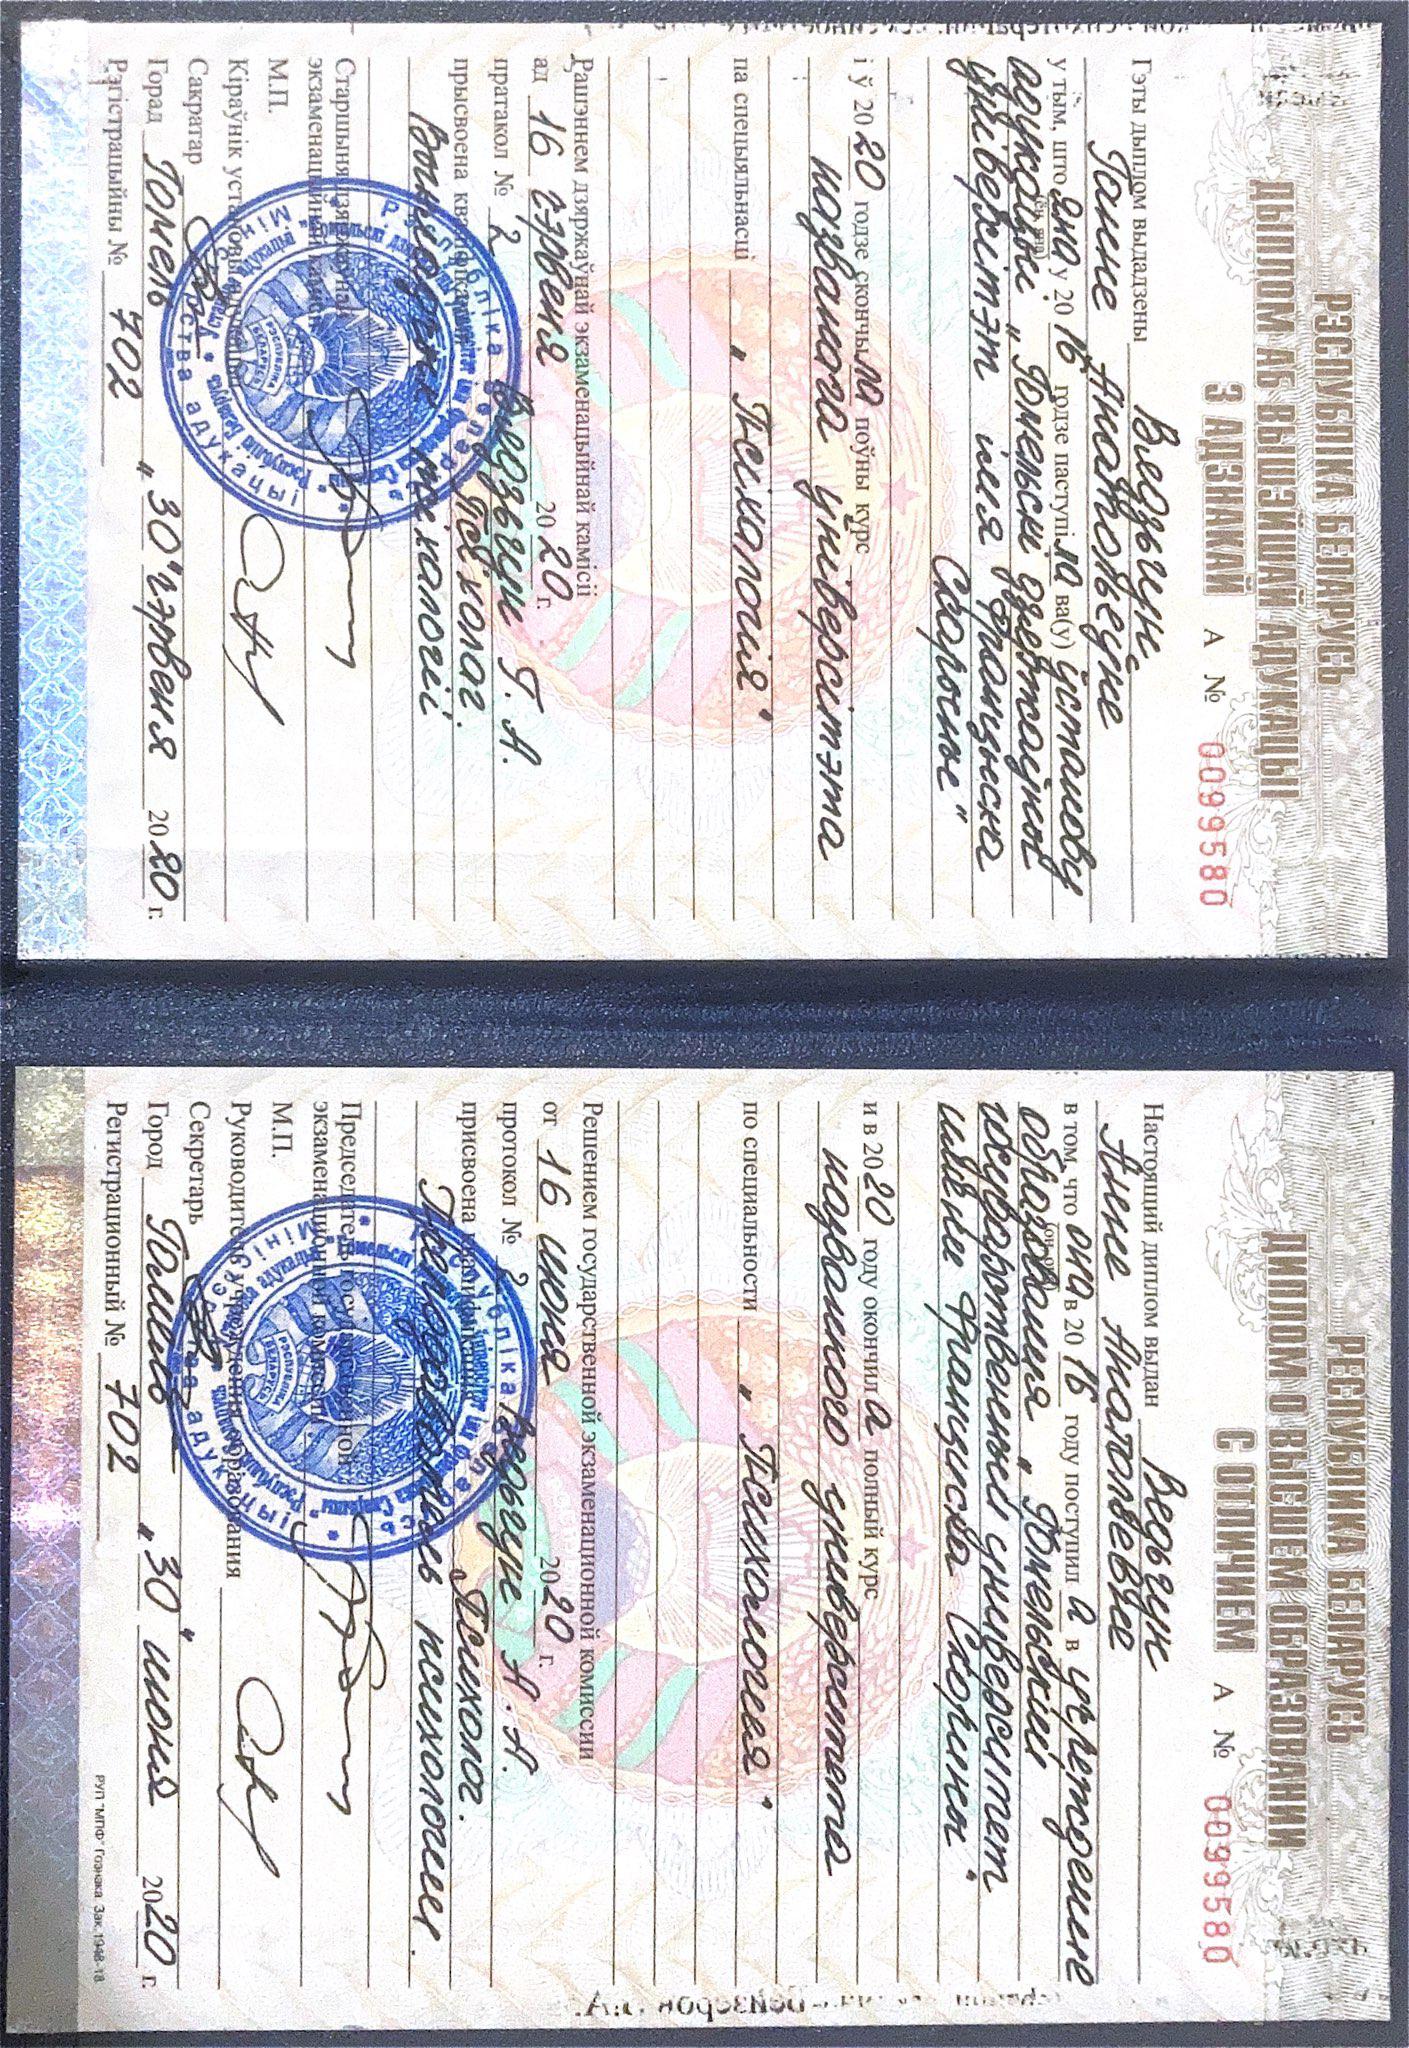 РЭСПУБЛІКА БЕЛАРУСЬ
ДЫПЛОМ АБ ВЫШЭЙШАЙ АДУКАЦЫІ
З АДЗНАКАЙ А № 0099580
Гэты дыплом выдадзены Вядзьгун
Ганне Анатольеўне
у тым, што яна у 2016 годзе паступіла ва(у) ўстанову
(ён, яна)
адукацыі „Гомельскі дзяржаўны
ўніверсітэт імя Францыска
Скарыны"
і ў 2020 годзе скончыла поўны курс
названага ўніверсітэта
па спецыяльнасці „Псіхалогія"
Рашэннем дзяржаўнай экзаменацыйнай камісіі
ад 16 чэрвеня 2020 г.
пратакол № 2 Вядзьгун Г. А.
прысвоена кваліфікацыя Псіхолаг.
Выкладчык псіхалогіі
Старшыня дзяржаўнай
экзаменацыйнай камісіі
М.П.
Кіраўнік установы адукацыі
Сакратар
Горад Гомель „30" чэрвеня 2020 г.
Рэгістрацыйны № 702
Рэспубліка Беларусь * Міністэрства адукацыі *
РЭСПУБЛІКА
БЕЛАРУСЬ
РЕСПУБЛИКА БЕЛАРУСЬ
ДИПЛОМ О ВЫСШЕМ ОБРАЗОВАНИИ
С ОТЛИЧИЕМ А № 0099580
Настоящий диплом выдан Ведьгун
Анне Анатольевне
в том, что она в 2016 году поступила в учреждение
(он, она)
образования „Гомельский
государственный университет
имени Франциска Скорины"
и в 2020 году окончила полный курс
названного университета
по специальности „Психология"
Решением государственной экзаменационной комиссии
от 16 июня 2020 г.
протокол № 2 Ведьгун А. А.
присвоена квалификация Психолог.
Преподаватель психологии.
Председатель государственной
экзаменационной комиссии
М.П.
Руководитель учреждения образования
Секретарь
Город Гомель „30" июня 2020 г.
Регистрационный № 702
РУП "МПФ" Гознака. Зак. 1948-18
Рэспубліка Беларусь * Міністэрства адукацыі *
РЭСПУБЛІКА
БЕЛАРУСЬ